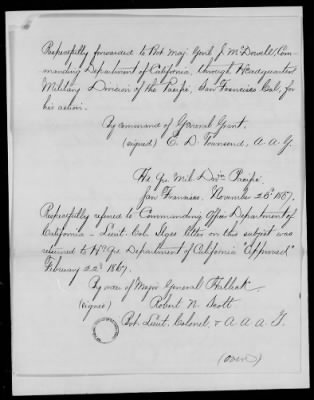 Respectfully forwarded to Bvt Maj Genl J. McDowell, Com-
manding Department of California, through Headquarters
Military Division of the Pacific, San Francisco Cal, for
his action.
By command of General Grant.
(signed) E. D. Townsend, A. A. G.
Hd Qrs Mil Divn Pacific
San Francisco. November 25th 1867.
Respectfully referred to Commanding Officer Department of
California — Lieut. Col. letter on this subject was
returned to Hd Qrs Department of California "Approved"
February 22d 1867.
By order of Major General Halleck
(signed) Robert N. Scott
Bvt. Lieut. Colonel, & A. A. A. G.
(over)